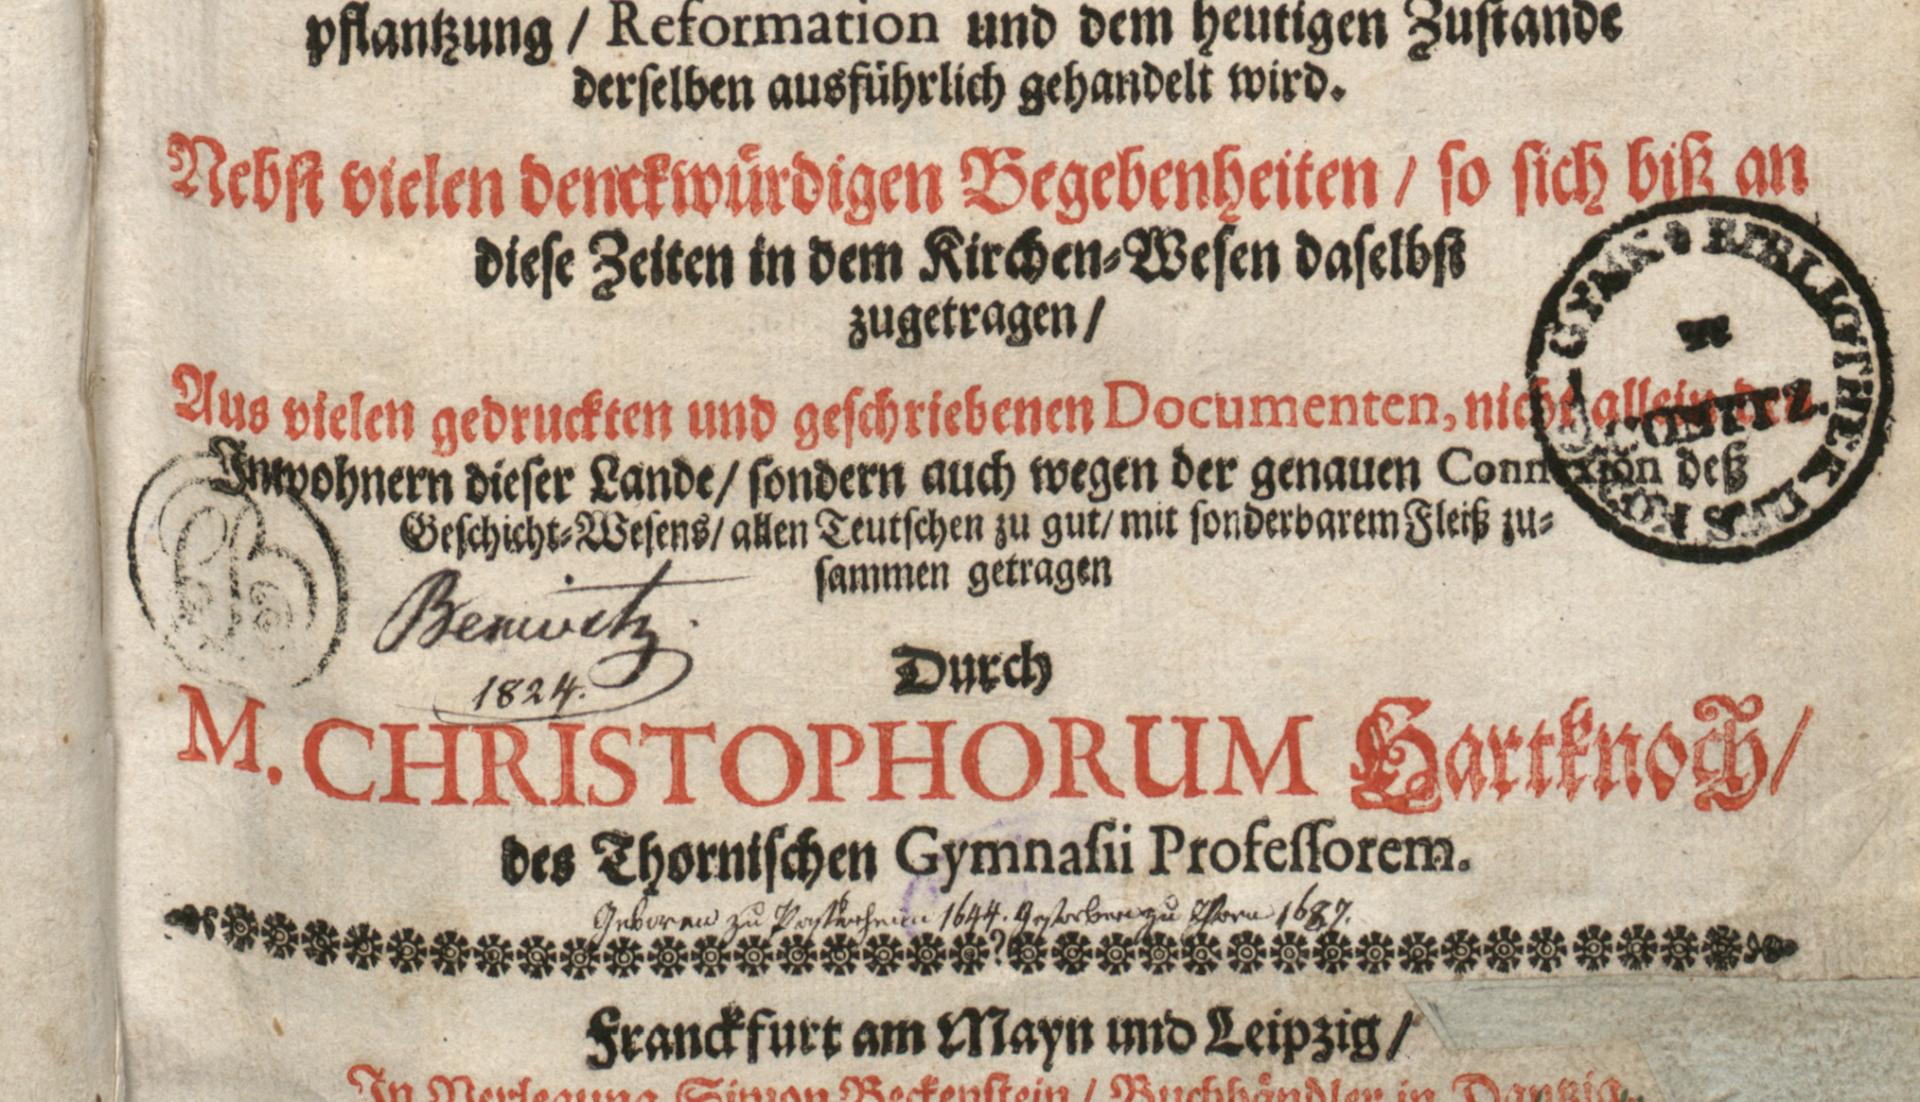 pflantzung / Reformation und dem heutigen Zustande
derselben ausführlich gehandelt wird.
Nebst vielen denckwürdigen Begebenheiten / so sich biß an
diese Zeiten in dem Kirchen-Wesen daselbst
zugetragen /
Aus vielen gedruckten und geschriebenen Documenten, nicht allein den
Inwohnern dieser Lande / sondern auch wegen der genauen Connexion deß
Geschicht-Wesens / allen Teutschen zu gut / mit sonderbarem Fleiß zu-
sammen getragen
Berwitz
1824.
Durch
M. CHRISTOPHORUM Hartknoch /
des Thornischen Gymnasii Professorem.
Geboren zu 1644. Gestorben zu Thorn 1687.
Franckfurt am Mayn und Leipzig /
In Verlegung Simon Beckenstein / Buchhändler in Dantzig.
BIBLIOTHEK DES KÖN. GYMN.
CONITZ.